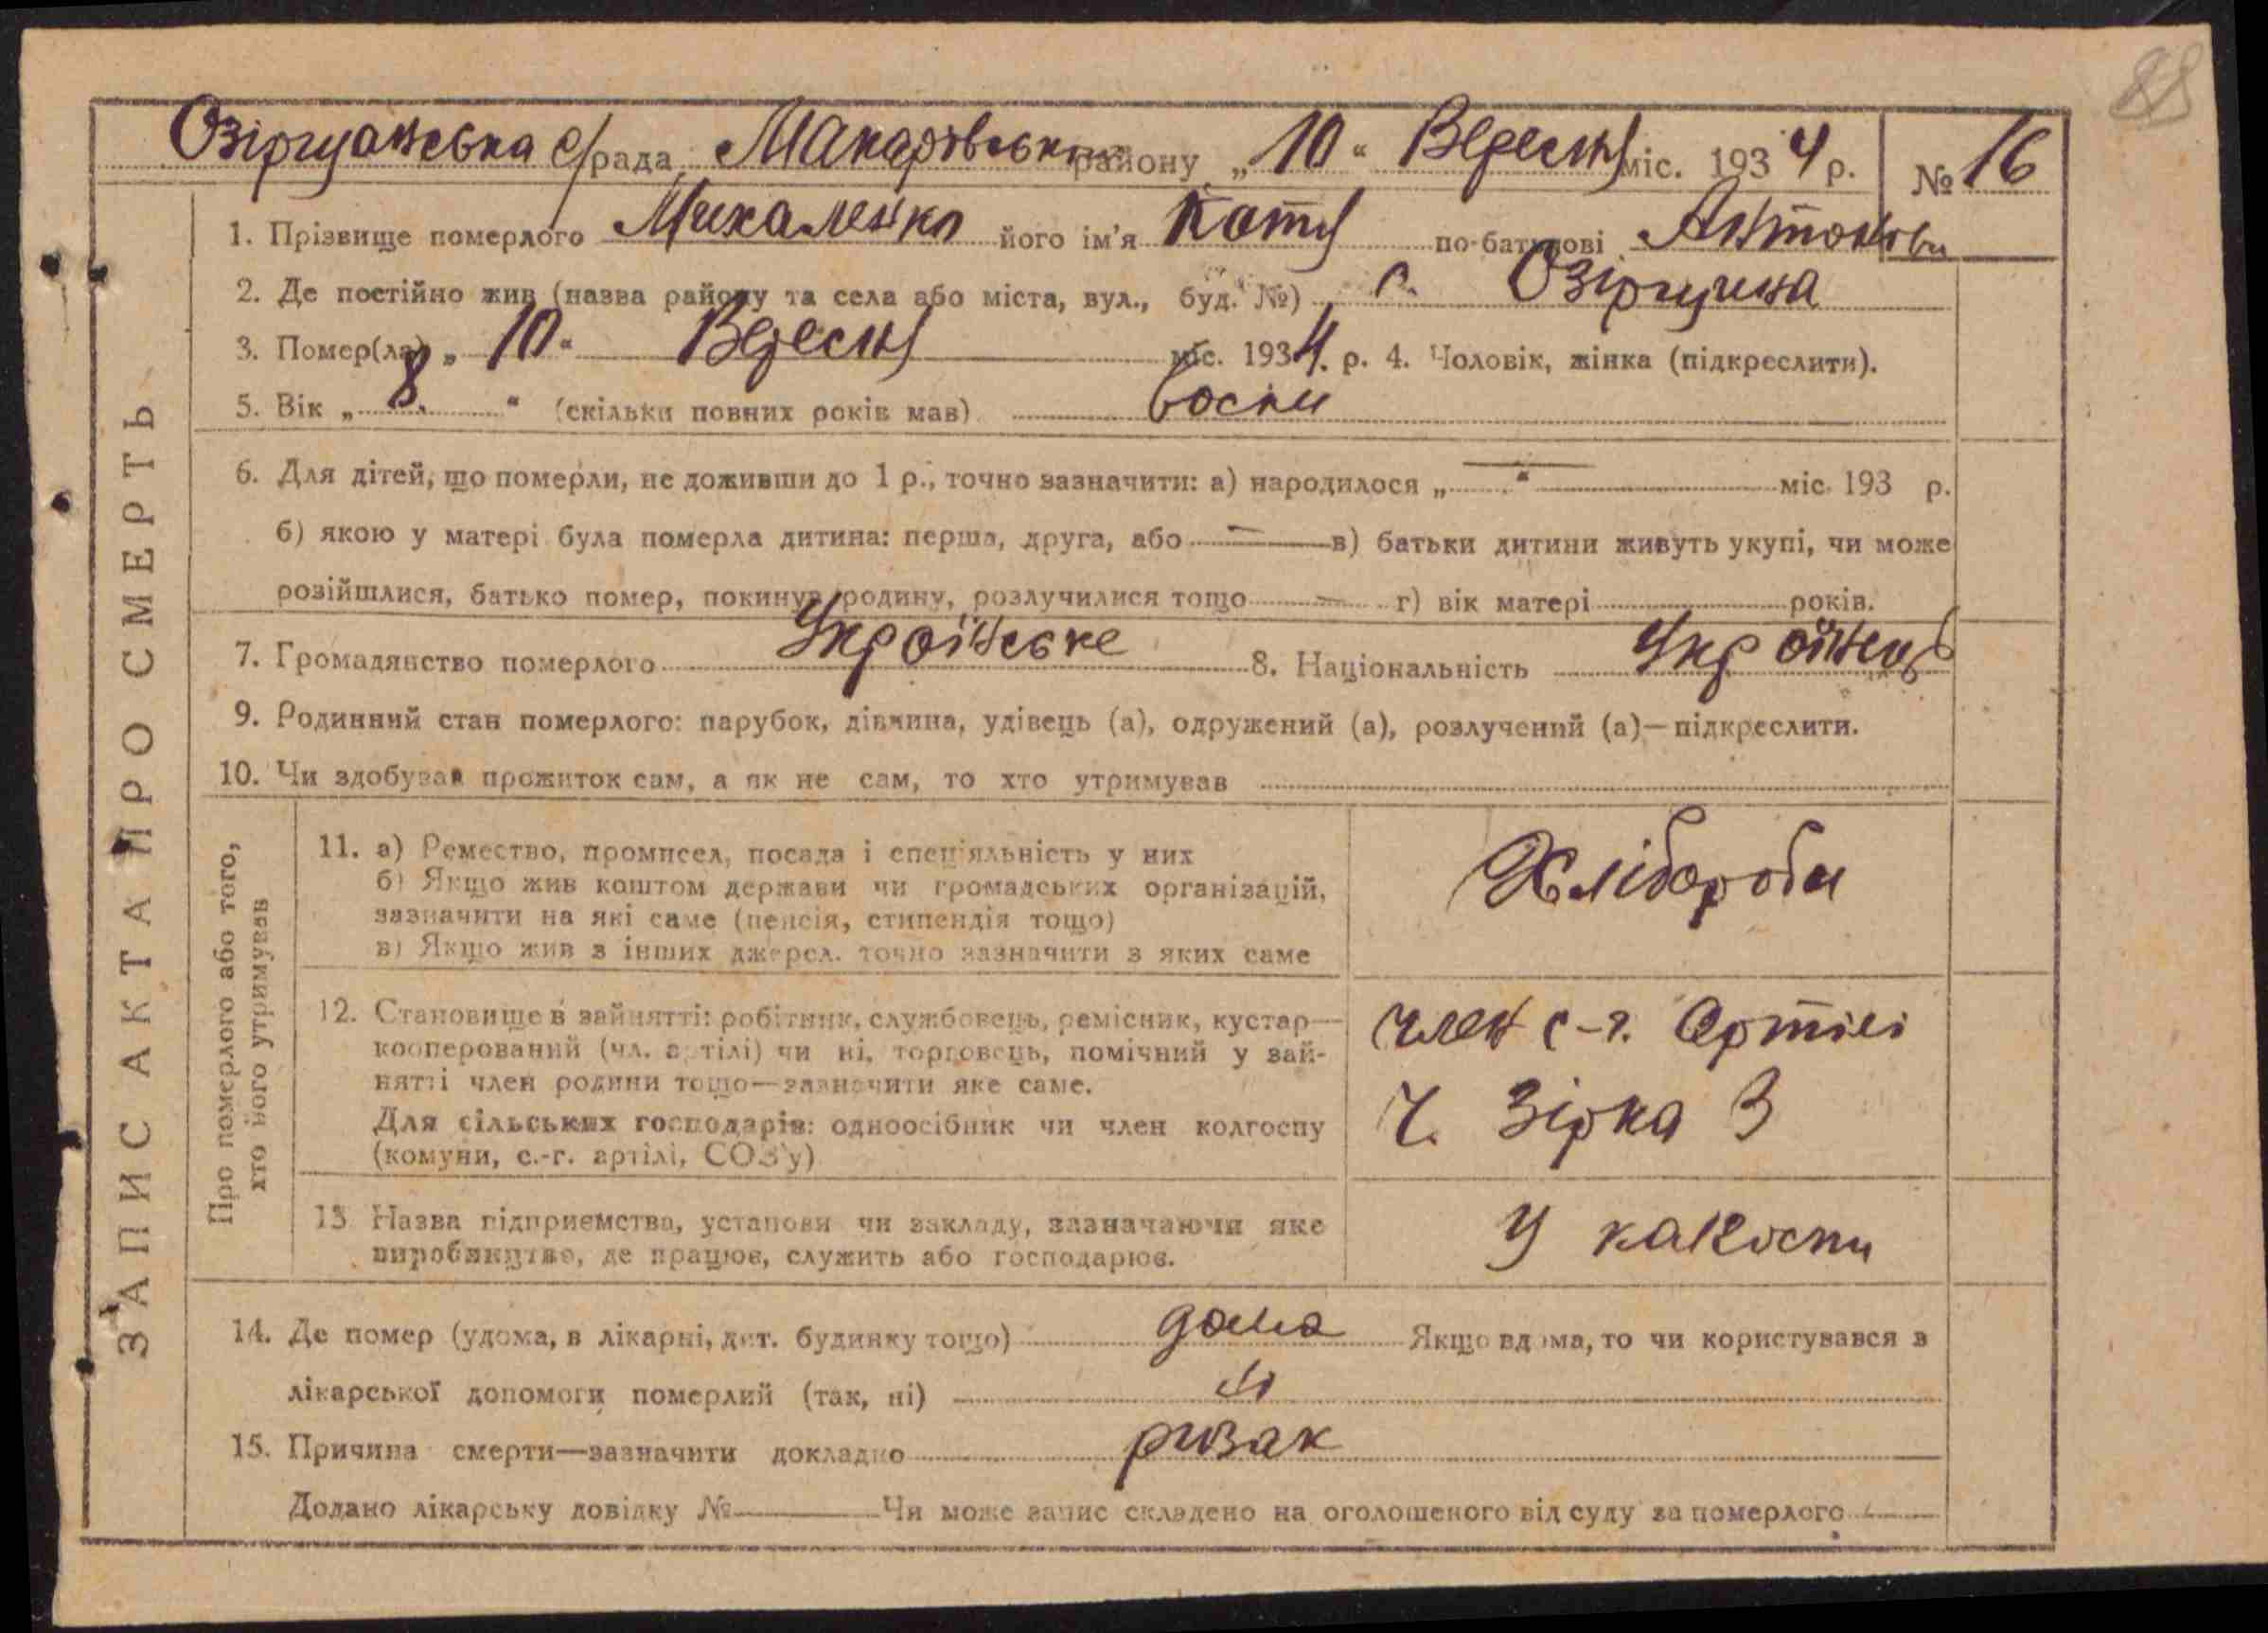 88
Озірщанська с/рада Макарівського району „10“ Вересня міс. 1934 р. № 16
1. Прізвище померлого Михаленко його ім'я Катя по-батькові Антонови
2. Де постійно жив (назва району та села або міста, вул., буд. №) с. Озірщина
3. Помер(ла) „10“ Вересня міс. 1934. р. 4. Чоловік, жінка (підкреслити).
5. Вік „8.“ (скільки повних років мав)
6. Для дітей, що померли, не доживши до 1 р., точно зазначити: а) народилося „—“ міс. 193 р.
б) якою у матері була померла дитина: перша, друга, або — в) батьки дитини живуть укупі, чи може
розійшлися, батько помер, покинув родину, розлучилися тощо — г) вік матері років.
7. Громадянство померлого Українське 8. Національність Українець
9. Родинний стан померлого: парубок, дівчина, удівець (а), одружений (а), розлучений (а)—підкреслити.
10. Чи здобував прожиток сам, а як не сам, то хто утримував
ЗАПИС АКТА ПРО СМЕРТЬ
Про померлого або того,
хто його утримував
11. а) Ремество, промисел, посада і спеціяльність у них
б) Якщо жив коштом держави чи громадських організацій,
зазначити на які саме (пенсія, стипендія тощо)
в) Якщо жив з інших джерел. точно зазначити з яких саме
Хлібороби
12. Становище в зайнятті: робітник, службовець, ремісник, кустар—
кооперований (чл. артілі) чи ні, торговець, помічний у зай-
нятті член родини тощо—зазначити яке саме.
Для сільських господарів: одноосібник чи член колгоспу
(комуни, с.-г. артілі, СОЗ'у)
член с-г. Артілі
Ч. Зірка 3
13 Назва підприємства, установи чи закладу, зазначаючи яке
виробництво, де працює, служить або господарює.
У
14. Де помер (удома, в лікарні, дит. будинку тощо) дома Якщо вдома, то чи користувався в
лікарської допомоги померлий (так, ні) ні
15. Причина смерти—зазначити докладно ризак
Додано лікарську довідку № — Чи може запис складено на оголошеного від суду за померлого —